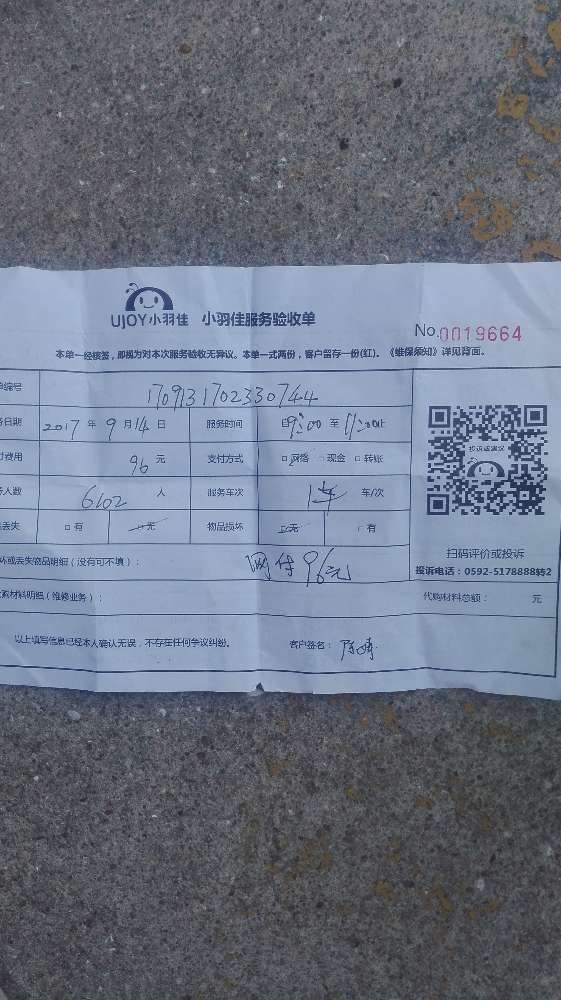 UJOY小羽佳 小羽佳服务验收单
No.0019664
本单一经核签，即视为对本次服务验收无异议。本单一式两份，客户留存一份(红)。《维保须知》详见背面。
单编号 1709131702330744
日期 2017 年 9 月 14 日 服务时间 9:00 至 11:00止
费用 96 元 支付方式 □网络 □现金 □转账
人数 6102 人 服务车次 1车 车/次
丢失 □有 □无 物品损坏 □无 □有
投诉或建议
扫码评价或投诉
投诉电话：0592-5178888转2
坏或丢失物品明细（没有可不填）： 网付96元
购材料明细（维修业务）： 代购材料总额： 元
以上填写信息已经本人确认无误，不存在任何争议纠纷。 客户签名：